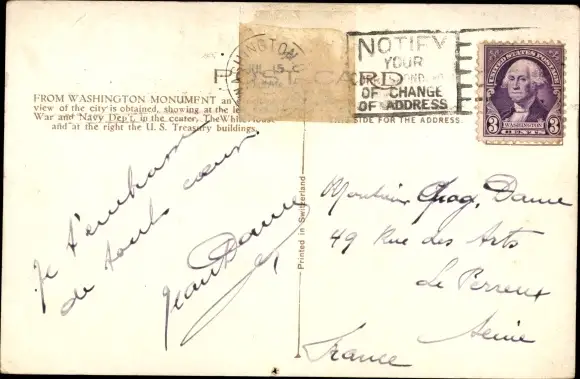 POST CARD
FROM WASHINGTON MONUMENT an
view of the city is obtained, showing at the le
War and Navy Dep't, in the center, The White House
and at the right the U. S. Treasury buildings.
WASHINGTON
NOTIFY
YOUR
OF CHANGE
OF ADDRESS
THIS SIDE FOR THE ADDRESS.
UNITED STATES POSTAGE
WASHINGTON
3 CENTS 3
Printed in Switzerland
Je t'embrasse
de tout coeur
Jean Danne
Monsieur Danne
49 Rue des Arts
Le Perreux
Seine
France